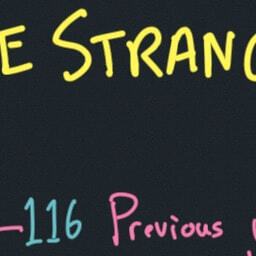 E STRANG
-116 Previous